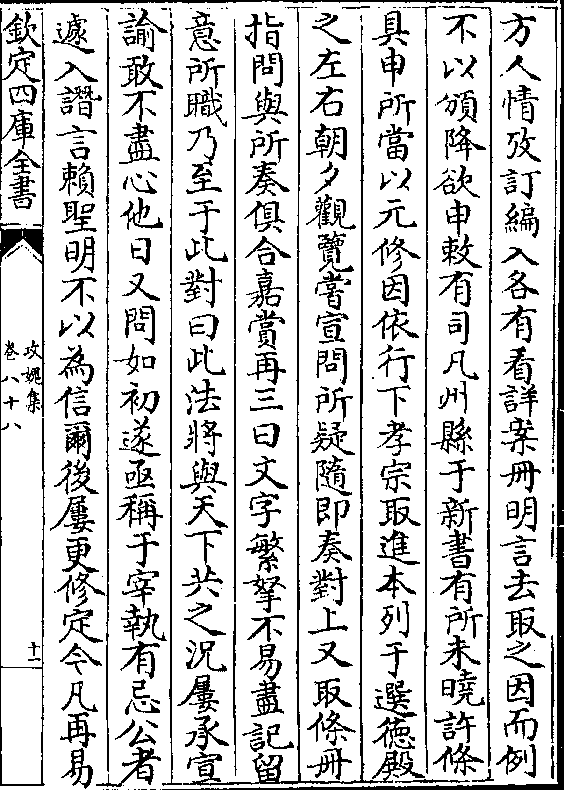 方人情攷訂編入各有看詳案冊明言去取之因而例
不以頒降欲申敕有司凡州縣于新書有所未曉許條
具申所當以元修因依行下孝宗取進本列于選德殿
之左右朝夕觀覽嘗宣問所疑隨即奏對上又取條冊
指問與所奏俱合嘉賞再三曰文字繁拏不易盡記留
意所職乃至于此對曰此法將與天下共之況屢承宣
諭敢不盡心他日又問如初遂亟稱于宰執有忌公者
遽入譖言賴聖明不以為信爾後屢更修定今凡再易
欽定四庫全書
攻媿集
卷八十八
十一